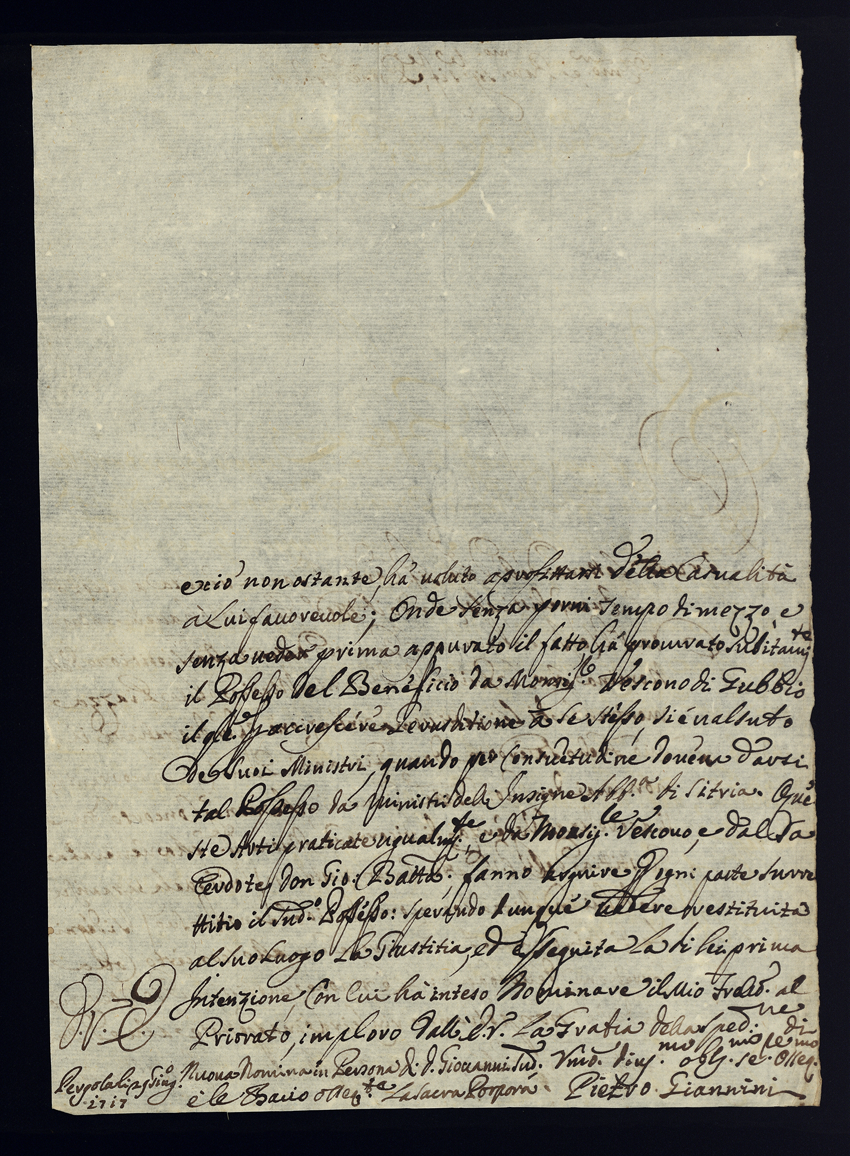 e ciò non ostante, hà voluto aprofittarsi della Casualità
à Lui favorevole; Onde senza porvi tempo di mezzo e
senza veder prima appurato il fatto hà procurato subitam.te
il Possesso del Beneficio da Monsig.r Vescovo di Gubbio
il qle. accrescere à se stesso, si é valsuto
de suoi Ministri, quando per Consuetudine doveva darsi
tal Possesso da Ministri dell' Insigne Abb.a di Sitria. Que
ste Arti praticate ugualm.te e da Monsig.r Vescovo, e dal Sa
cerdote, Don Gio: Batta. fanno seguire ogni parte surre
ttitio il sud.o Possesso: sperando dunque vedere restituita
al suo Luogo La Giustitia, ed esseguita La di lei prima
Intenzione Con cui hà inteso Nominare il Mio Frello. al
Priorato, imploro dall' La Gratia della sped.ne di
Nuova Nomina in Persona di D. Giovanni sud.
Pergola li 29 Giug.o
1717
e le Bacio osseq.te La Sacra Porpora
Pietro Giannini